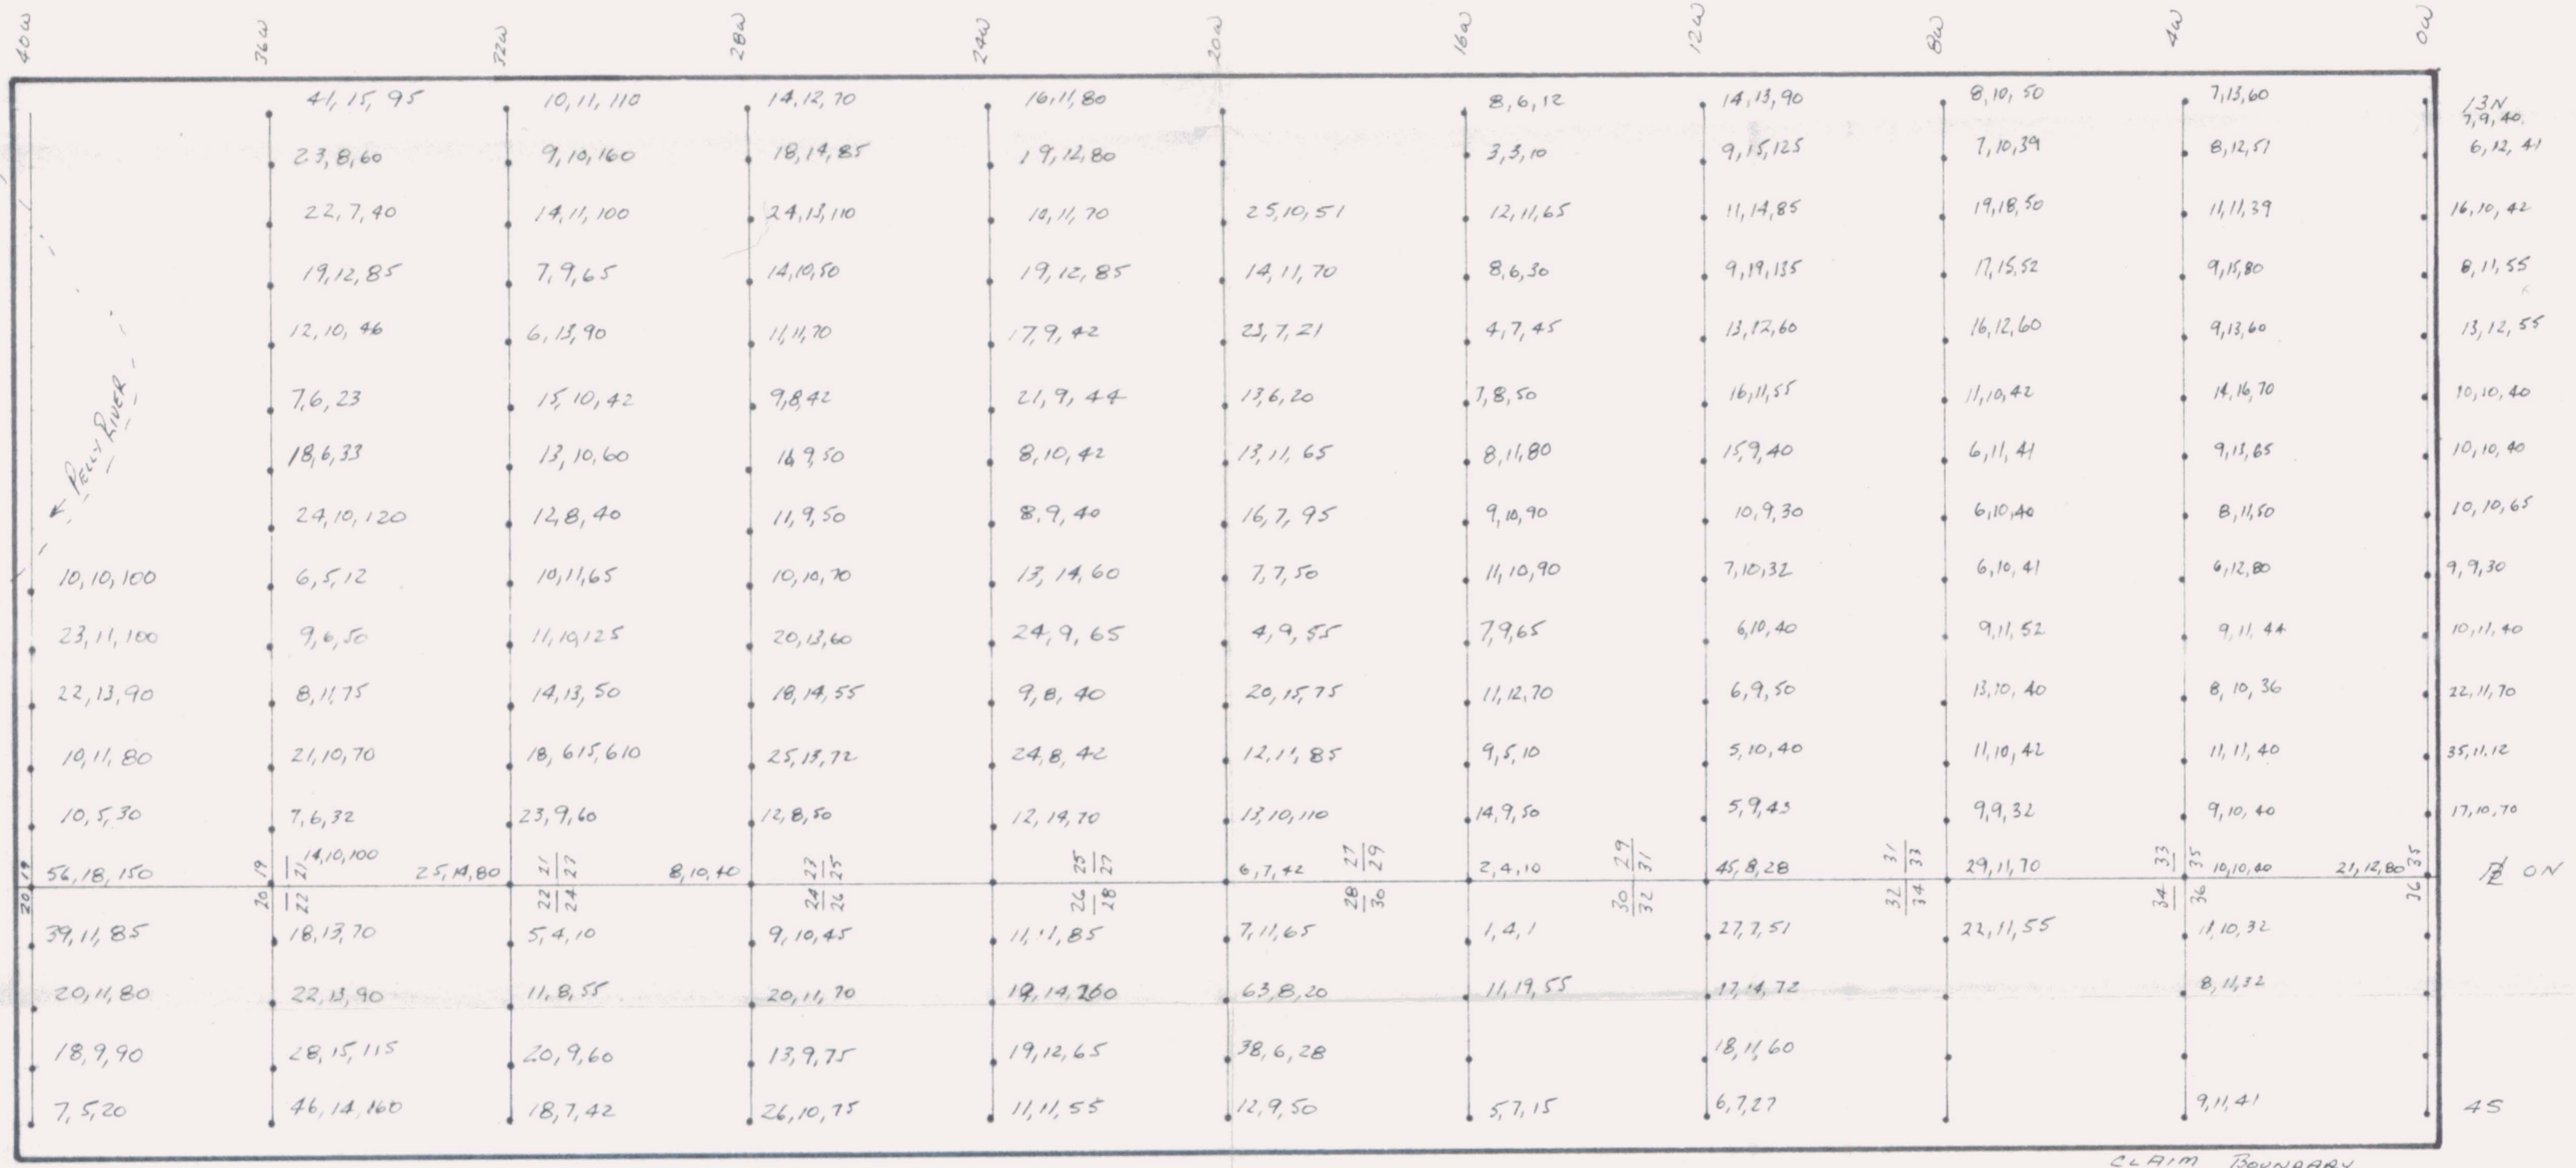 40W 36W 32W 28W 24W 20W 16W 12W 8W 4W 0W
41,15,95 10,11,110 14,12,70 16,11,80 8,6,12 14,13,90 8,10,50 7,13,60 13N
7,9,40
23,8,60 9,10,160 18,14,85 19,12,80 3,3,10 9,15,125 7,10,39 8,12,51 6,12,41
22,7,40 14,11,100 24,13,110 10,11,70 25,10,51 12,11,65 11,14,85 19,18,50 11,11,39 16,10,42
19,12,85 7,9,65 14,10,50 19,12,85 14,11,70 8,6,30 9,19,135 17,15,52 9,15,80 8,11,55
12,10,46 6,13,90 11,11,70 17,9,42 23,7,21 4,7,45 13,12,60 16,12,60 9,13,60 13,12,55
PELLY RIVER
7,6,23 15,10,42 9,8,42 21,9,44 13,6,20 7,8,50 16,11,55 11,10,42 14,16,70 10,10,40
18,6,33 13,10,60 9,50 8,10,42 13,11,65 8,11,80 15,9,40 6,11,41 9,13,65 10,10,40
24,10,120 12,8,40 11,9,50 8,9,40 16,7,95 9,10,90 10,9,30 6,10,40 8,11,50 10,10,65
10,10,100 6,5,12 10,11,65 10,10,70 13,14,60 7,7,50 11,10,90 7,10,32 6,10,41 6,12,80 9,9,30
23,11,100 9,6,50 11,10,125 20,13,60 24,9,65 4,9,55 7,9,65 6,10,40 9,11,52 9,11,44 10,11,40
22,13,90 8,11,75 14,13,50 18,14,55 9,8,40 20,15,75 11,12,70 6,9,50 13,10,40 8,10,36 22,11,70
10,11,80 21,10,70 18,615,610 25,13,72 24,8,42 12,11,85 9,5,10 5,10,40 11,10,42 11,11,40 35,11,12
10,5,30 7,6,32 23,9,60 12,8,50 12,14,70 13,10,110 14,9,50 5,9,43 9,9,32 9,10,40 17,10,70
19 56,18,150 19 21 14,10,100 25,14,80 21 23 8,10,40 23 25 25 27 6,7,42 27 29 2,4,10 29 31 45,8,28 31 33 29,11,70 33 35 10,10,40 21,12,80 35 0N
20 20 22 22 24 24 26 26 28 28 30 30 32 32 34 34 36 36
39,11,85 18,13,70 5,4,10 9,10,45 11,11,85 7,11,65 1,4,1 27,7,51 22,11,55 11,10,32
20,11,80 22,13,90 11,8,55 20,11,70 63,8,20 11,19,55 17,14,72 8,11,32
18,9,90 28,15,115 20,9,60 13,9,75 19,12,65 38,6,28 18,11,60
7,5,20 46,14,160 18,7,42 26,10,75 11,11,55 12,9,50 5,7,15 6,7,27 9,11,41 4S
CLAIM BOUNDARY